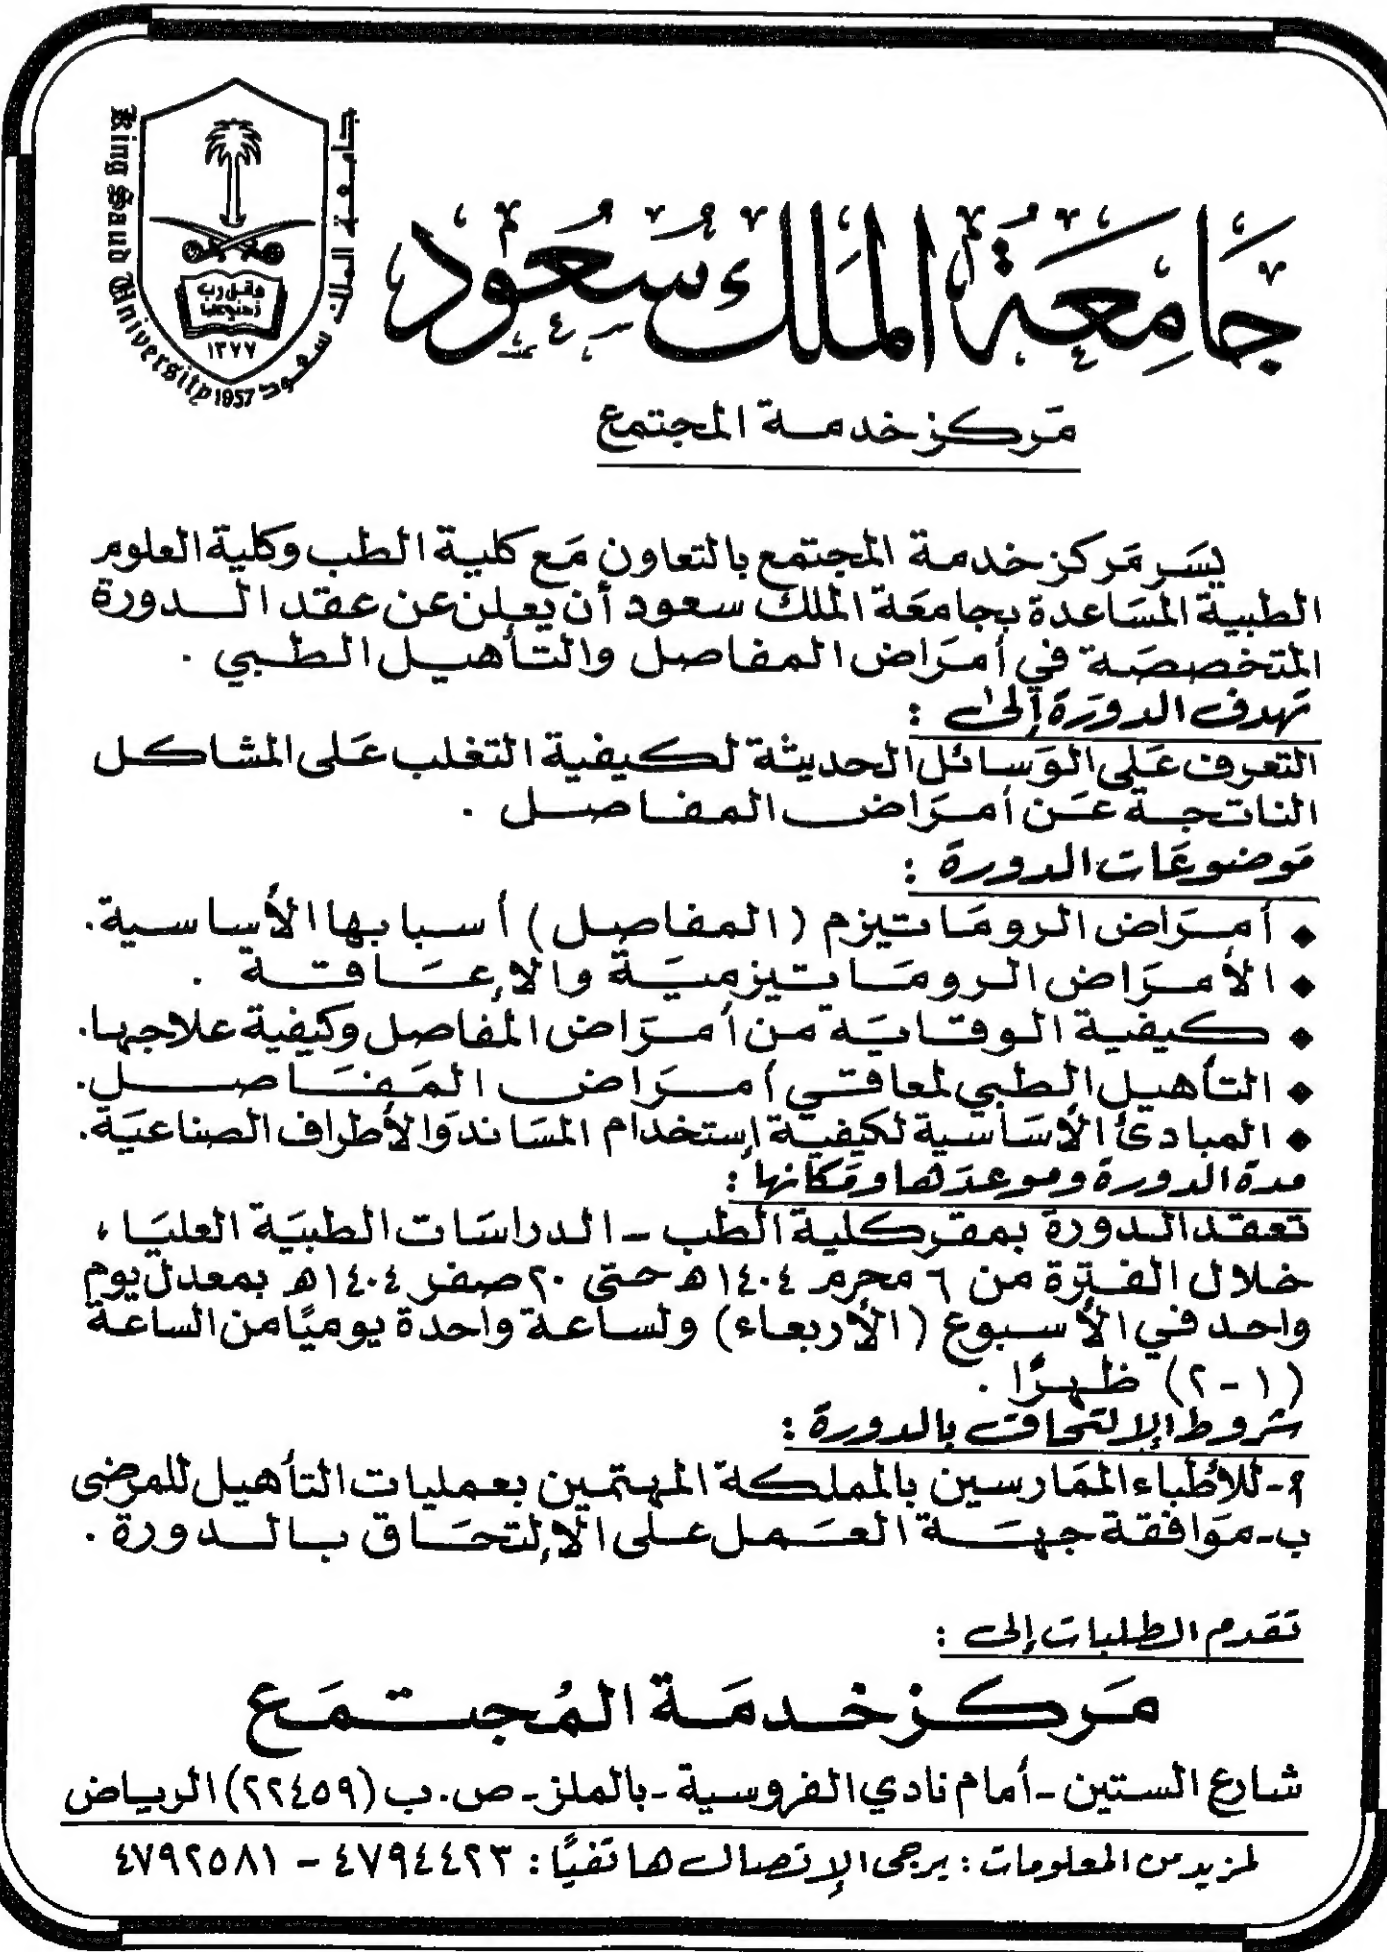 جامعة الملك سعود
King Saud University 1957
وقل رب
زدني علما
١٣٧٧
جَامِعَةُ المَلِك سُعُود
مَركز خدمة المجتمع
يسَر مَركز خدمة المجتمع بالتعاون مَع كلية الطب وكلية العلوم
الطبية المسَاعدة بجامعَة الملك سعود أن يعلن عن عقد الدورة
المتخصصَة في أمرَاض المفاصل والتأهيل الطبي .
تهدف الدورَة إلى :
التعرف عَلى الوَسائل الحديثة لكيفية التغلب عَلى المشاكل
الناتجة عَن أمرَاض المفاصل .
مَوضوعَات الدورة :
◆ أمرَاض الرومَاتيزم (المفاصل) أسبابها الأساسية.
◆ الأمرَاض الرومَاتيزميَة والإعَاقة .
◆ كيفية الوقايَة من أمرَاض المفاصل وكيفية علاجها.
◆ التأهيل الطبي لمعاقي أمرَاض المَفَاصل.
◆ المبادئ الأسَاسية لكيفيَة إستخدام المسَاند وَالأطراف الصناعيَة.
مدة الدورة وموعدَها ومَكانها :
تعقد الدورة بمقر كلية الطب - الدراسَات الطبيَة العليَا ،
خلال الفترة من ٦ محرم ١٤٠٤هـ حتى ٢٠ صفر ١٤٠٤هـ بمعدل يوم
واحد في الأسبوع (الأربعاء) ولساعة واحدة يوميًا من الساعة
(١-٢) ظهرًا .
شروط الإلتحاق بالدورة :
أ- للأطباء الممَارسين بالمملكة المهتمين بعمليات التأهيل للمرضى
ب- موَافقة جهَة العَمل على الإلتحَاق بالدورة .
تقدم الطلبات إلى :
مَركز خدمَة المُجتمَع
شارع الستين - أمام نادي الفروسية - بالملز - ص.ب (٢٢٤٥٩) الرياض
لمزيد من المعلومات : يرجى الإتصال هاتفيًا : ٤٧٩٤٤٢٣ - ٤٧٩٢٥٨١